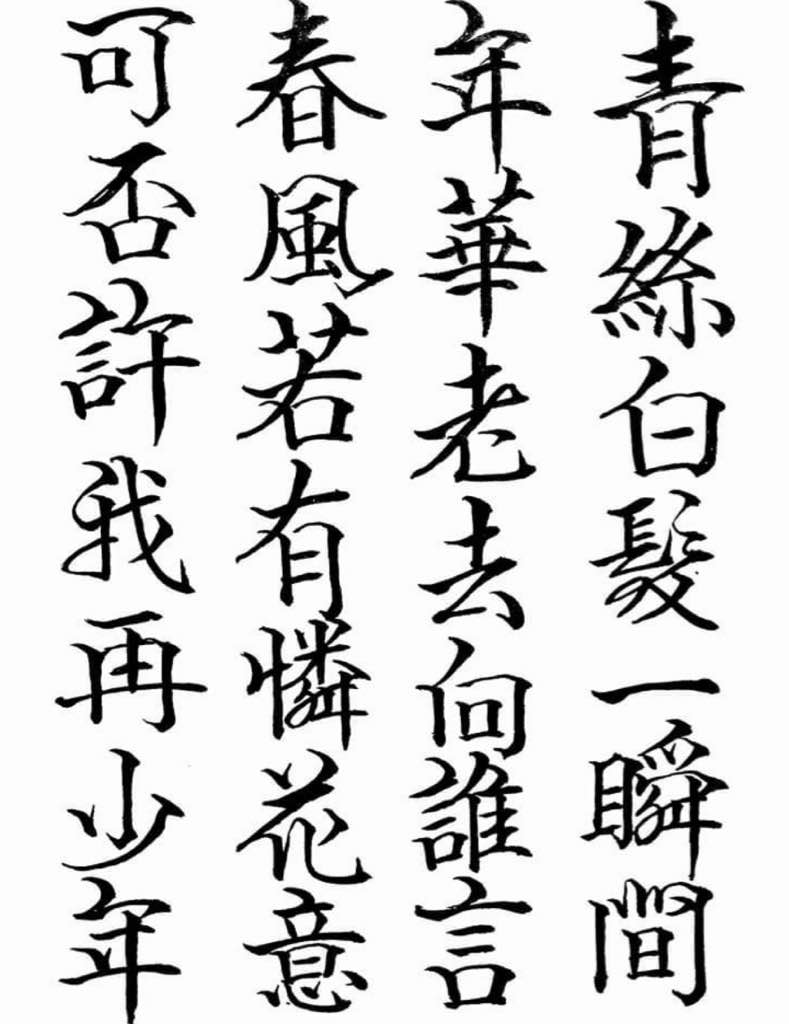 青絲白髮一瞬間
年華老去向誰言
春風若有憐花意
可否許我再少年